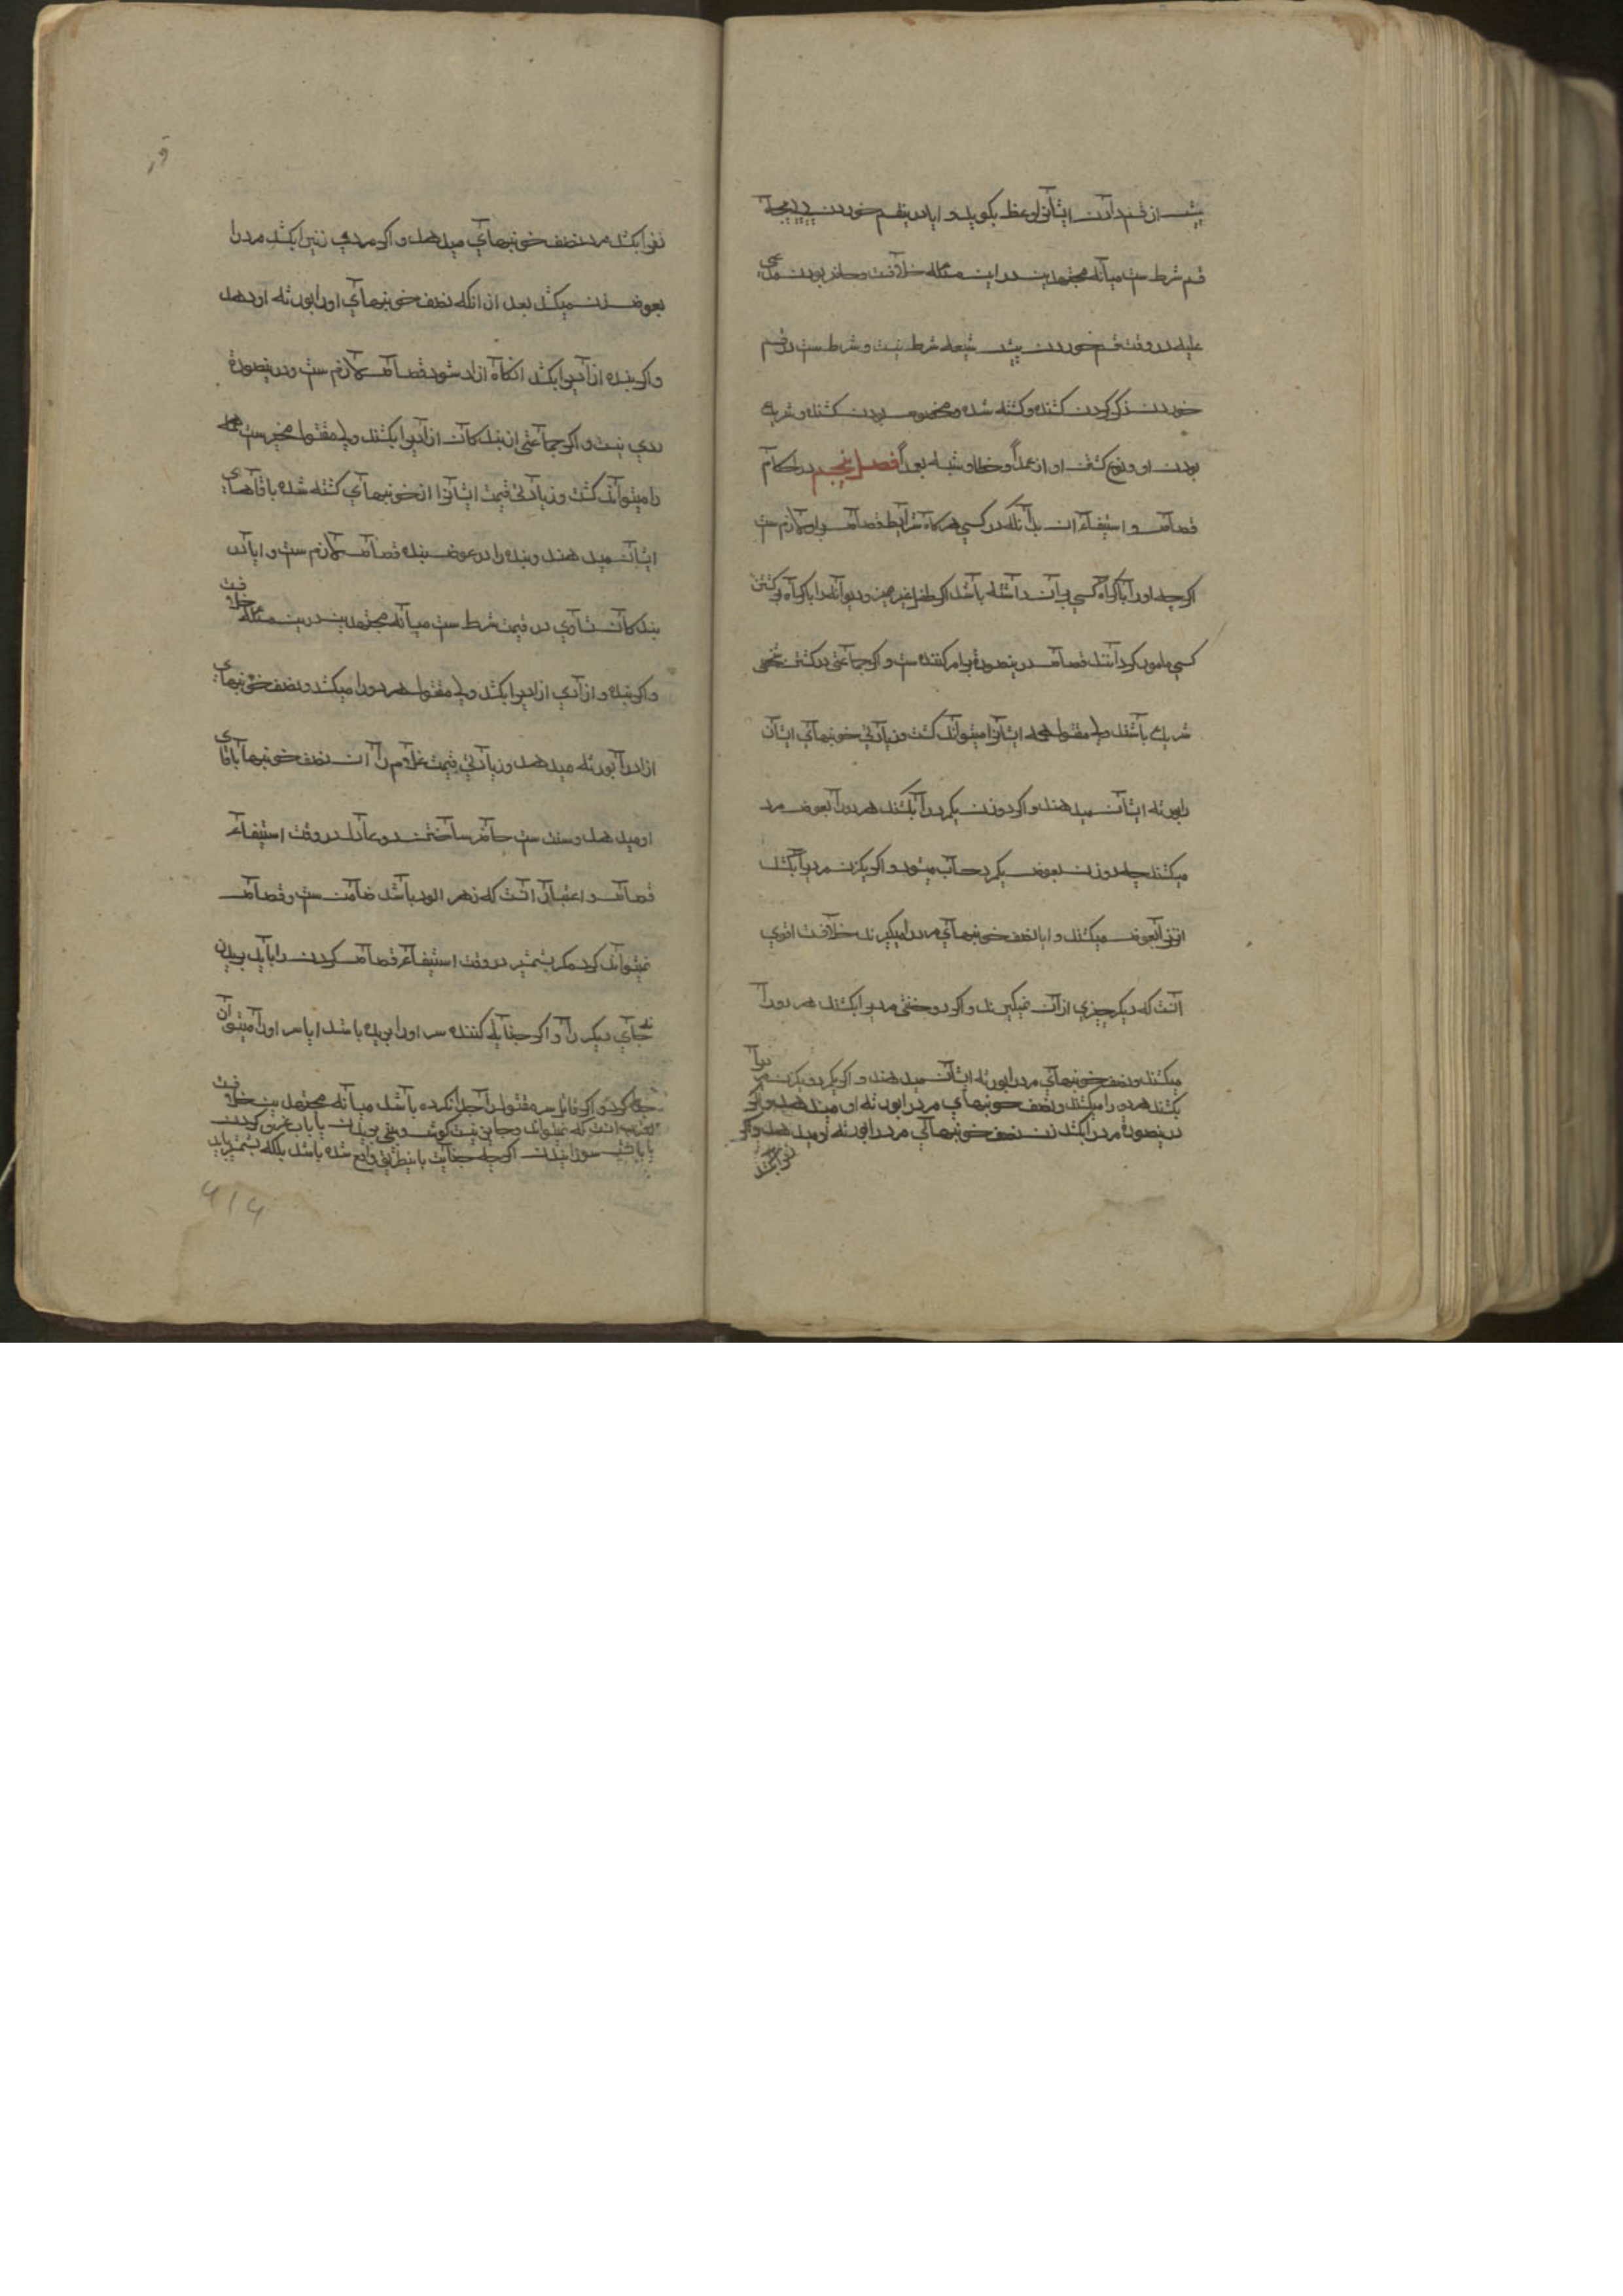 پیش از قسم دادن ایشانرا وعظ بکوید و ایا در قسم خوردن
قسم شرط ست میانه مجتهدین در این مسئله خلافست و حاضر بودن مدعی
علیه در وقت قسم خوردن پیش شیعه شرط نیست و شرط ست در قسم
خوردن ذکر کردن کشنده و کشته شده و مخصوص بودن کشنده و شریک
بودن او و نوع کشتن او از عمداً و خطا و شبیه بعمداً فصل پنجم در احکام
قصاص و استیفاء ان بدآنکه در کسی هرکاه شرایط قصاص براو لازم ست
اکرچه او را باکراه کسی بران داشته باشد اکر طفل غیر ممیز و دیوانه را باکراه بر کشتن
کسی مامور کرد‌آنند قصاص درینصورة بر امر کننده ست و اکر جماعتی در کشتن شخصی
شریک باشند ولی مقتول همه ایشانرا میتواند کشت و زیادتی خونبهای ایشان
را بورثه ایشان میدهند و اکر دو زن یکمرد را بکشند هر دو را بعوض مرد
میکشند چه دو زن بعوض یکمرد حساب میشود و اکر یکزن مردیرا بکشد
انزنرا بعوض میکشند و ایا نصف خونبهای مرد را میکیرند خلافست اقوی
آنست که دیکر چیزی از آن نمیکیرند و اکر دو خنثی مردیرا بکشند هر دو را
میکشند و نصف خونبهای مرد را بورثه ایشان میدهند و اکر یکمرد و یکزن مردیرا
بکشند هر دو را میکشند و نصف خونبهای مرد را بورثه او میدهند و اکر
درینصورة مرد را بکشد زن نصف خونبهای مرد را بورثه او میدهد و اکر
زنرا بکشد
زنرا بکشد مرد نصف خونبهای میدهد و اکر مردی زنیرا بکشد مرد را
بعوض زن میکشد بعد از انکه نصف خونبهای او را بورثه او دهد
و اکر بنده ازادیرا بکشد انکاه ازاد شود قصاص لازم ست و درینصورة
ردی نیست و اکر جماعتی از بندکان ازادیرا بکشند ولی مقتول مخیرست همه
را میتواند کشت و زیادتی قیمت ایشانرا از خونبهای کشته شده باقاهای
ایشان میدهند و بنده را در عوض بنده قصاص لازم ست و ایا در
بندکان تساوی در قیمت شرط ست میانه مجتهدین درین مسئله خلافست
و اکر بنده و ازادی ازادیرا بکشد ولی مقتول هر دو را میکشد و نصف خونبهای
ازاد را بورثه میدهد و زیادتی قیمت غلام را از ان نصف خونبها باقای
او میدهد و سنت ست حاضر ساختن دو عادل در وقت استیفاء
قصاص و اعتبار انست که زهر الود باشد ضامن ست و قصاص
نمیتواند کرد مکر بشمشیر در وقت استیفاء قصاص کردن را باید بریدن
نه جای دیکر را و اکر جنایة کننده سر او را بریده باشد ایا سر او را میتوان
جدا کرد و اکر قاتل سر مقتول را جدا نکرده باشد میانه مجتهدین خلافست
اقرب انست که نمیتواند و جایز نیست کوش و بینی بریدن یا باب غرق کردن
یا باتش سوزانیدن اکرچه جنایت باینطریق واقع شده باشد بلکه بشمشیر باید
۶۱۶